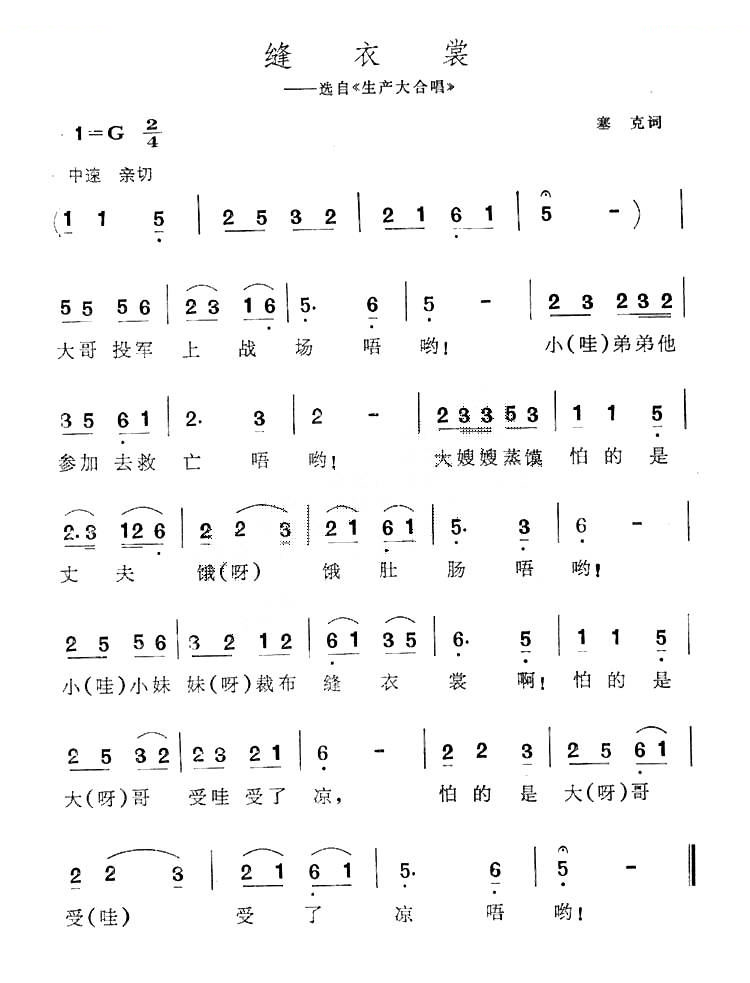 缝 衣 裳
——选自《生产大合唱》
1=G 2/4
塞 克词
中速 亲切
(1 1 5 | 2 5 3 2 | 2 1 6 1 | 5 - ) |
5 5 5 6 | 2 3 1 6 | 5· 6 | 5 - | 2 3 2 3 2 |
大哥 投军 上 战 场 唔 哟! 小(哇)弟弟他
3 5 6 1 | 2· 3 | 2 - | 2 3 3 5 3 | 1 1 5 |
参加 去救 亡 唔 哟! 大嫂嫂蒸馍 怕 的 是
2· 3 1 2 6 | 2 2 3 | 2 1 6 1 | 5· 3 | 6 - |
丈 夫 饿(呀) 饿 肚 肠 唔 哟!
2 5 5 6 | 3 2 1 2 | 6 1 3 5 | 6· 5 | 1 1 5 |
小(哇)小妹 妹(呀)裁布 缝 衣 裳 啊! 怕 的 是
2 5 3 2 | 2 3 2 1 | 6 - | 2 2 3 | 2 5 6 1 |
大(呀)哥 受哇 受了 凉, 怕 的 是 大(呀)哥
2 2 3 | 2 1 6 1 | 5· 6 | 5 - ‖
受(哇) 受 了 凉 唔 哟!